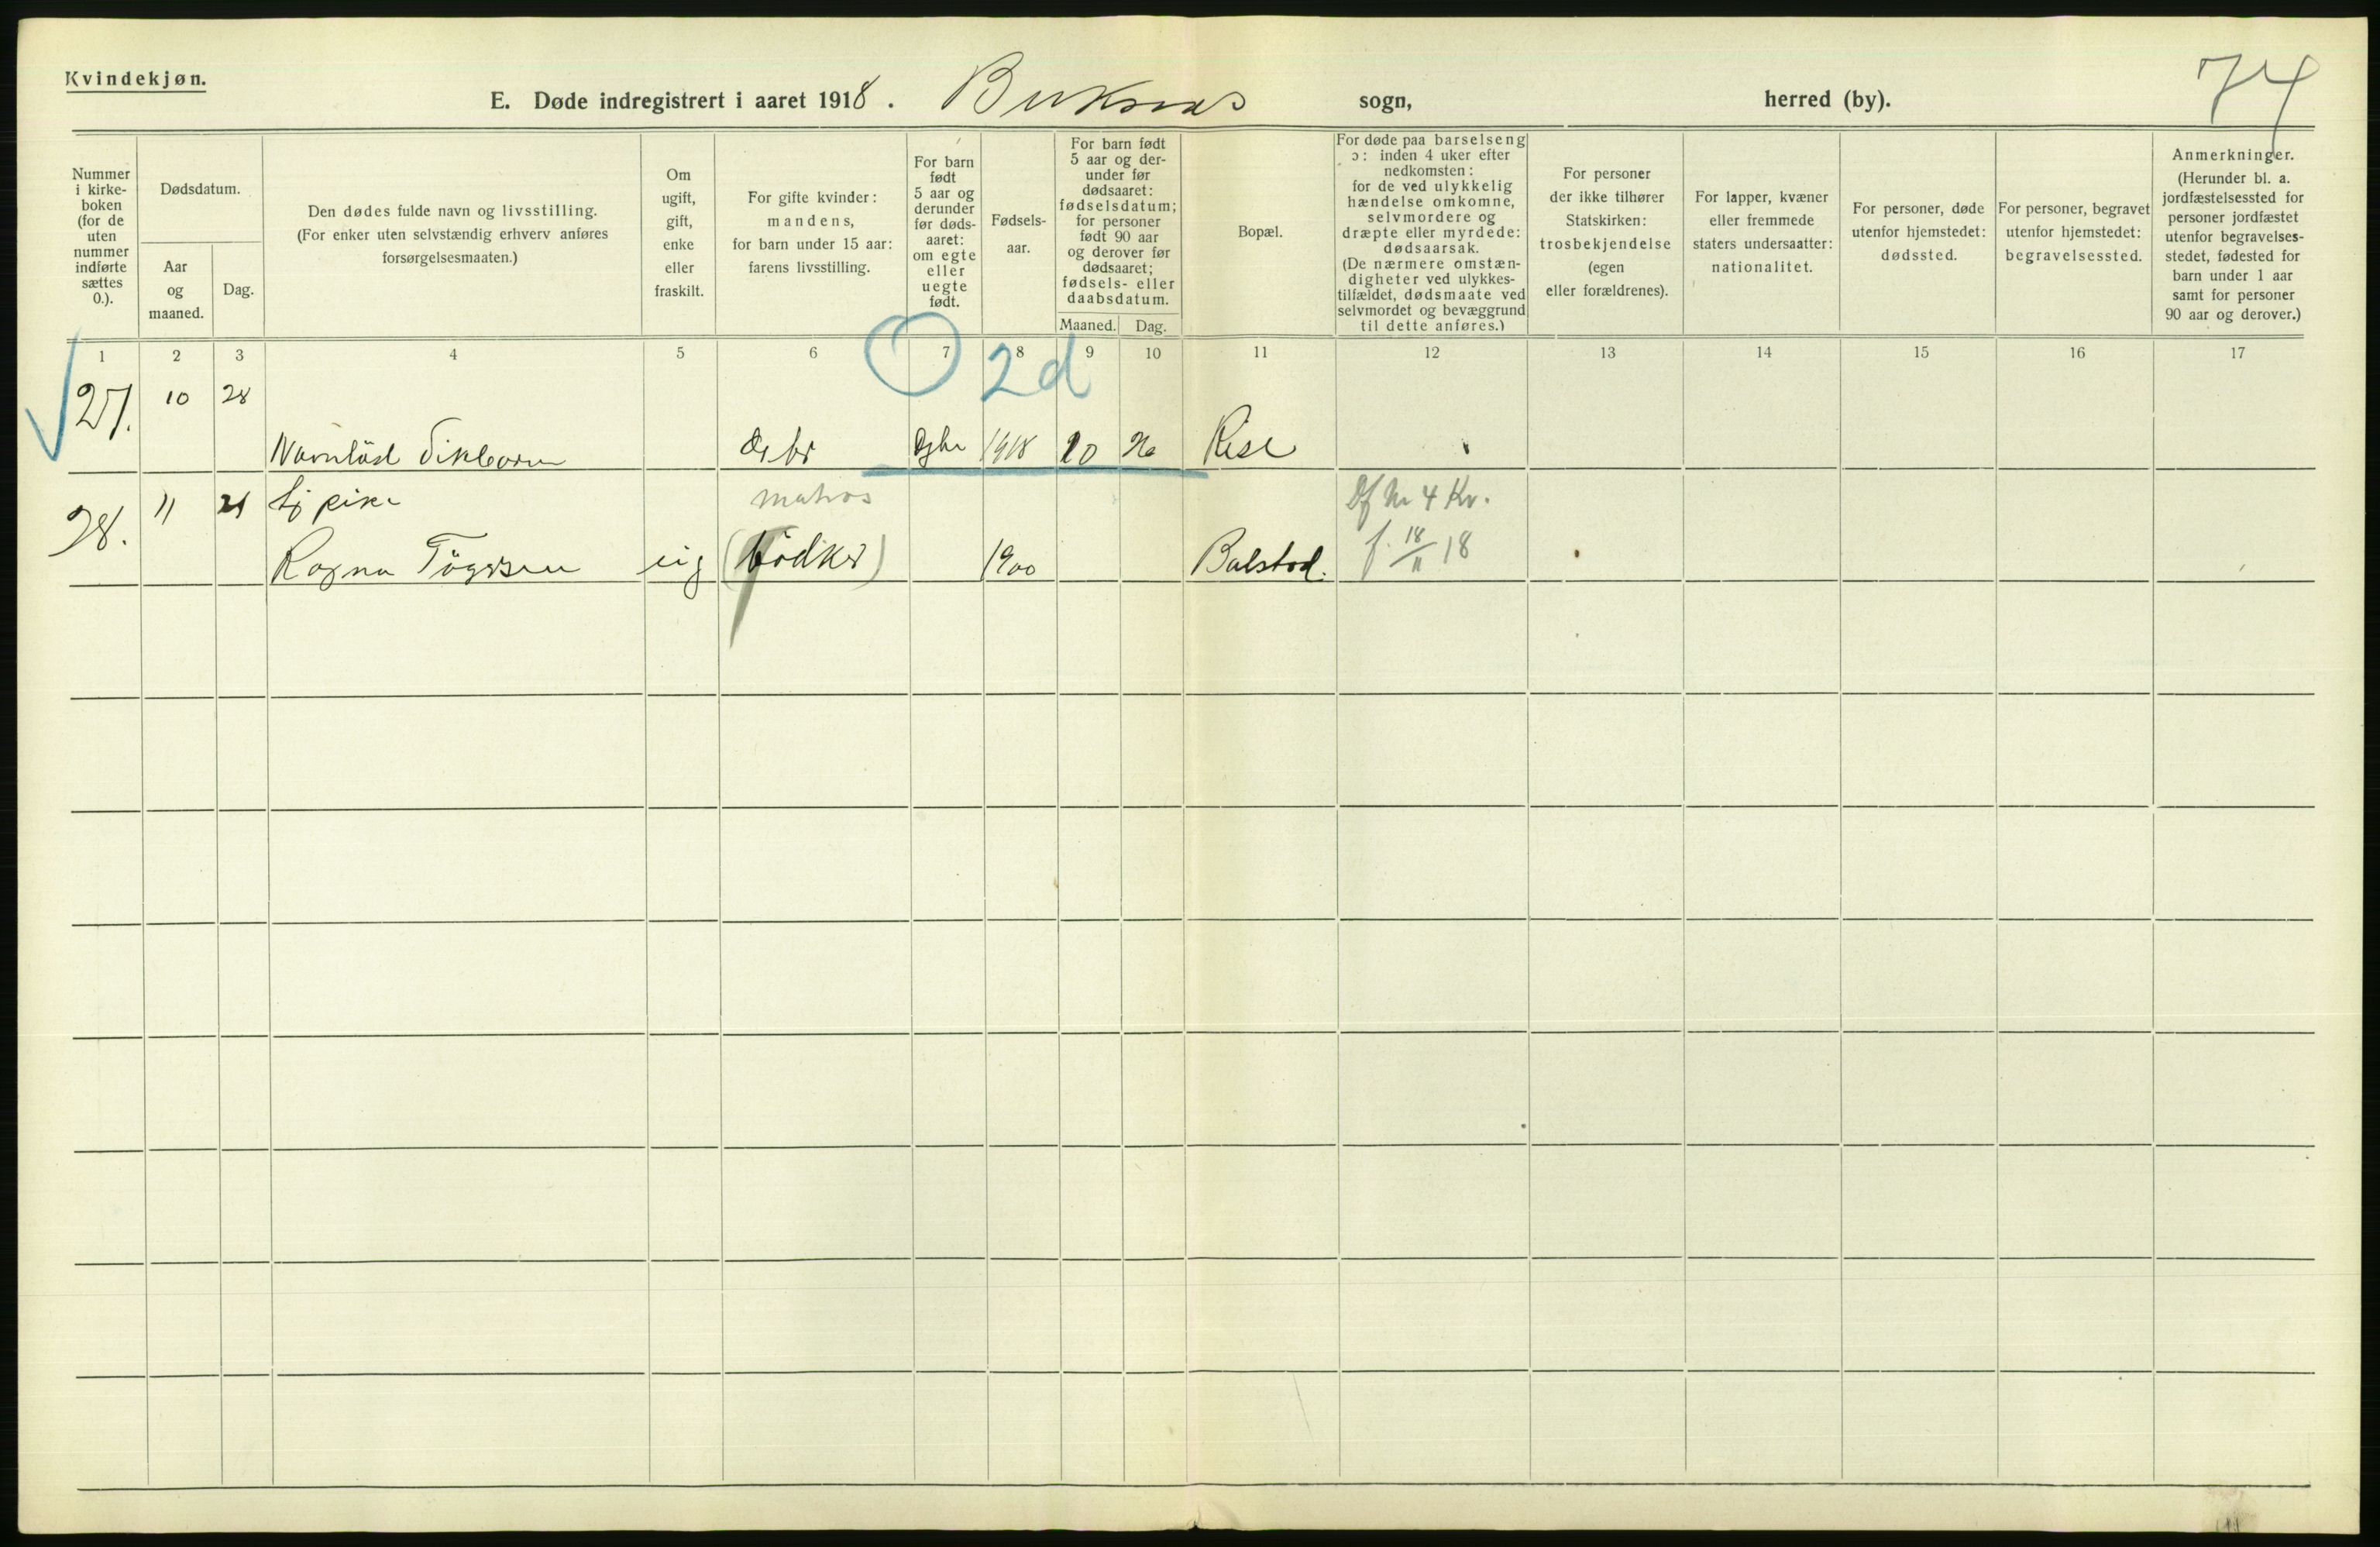 Kvindekjøn.
E. Døde indregistrert i aaret 1918. Buksnes sogn, herred (by).
74
Nummer i kirkeboken (for de uten nummer indførte sættes 0.).
Dødsdatum.
Aar og maaned.
Dag.
Den dødes fulde navn og livsstilling.
(For enker uten selvstændig erhverv anføres
forsørgelsesmaaten.)
Om
ugift,
gift,
enke
eller
fraskilt.
For gifte kvinder:
mandens,
for barn under 15 aar:
farens livsstilling.
For barn
født
5 aar og
derunder
før døds-
aaret:
om egte
eller
uegte
født.
Fødsels-
aar.
For barn født
5 aar og der-
under før
dødsaaret:
fødselsdatum;
for personer
født 90 aar
og derover før
dødsaaret;
fødsels- eller
daabsdatum.
Maaned.
Dag.
Bopæl.
For døde paa barselseng
ɔ: inden 4 uker efter
nedkomsten:
for de ved ulykkelig
hændelse omkomne,
selvmordere og
dræpte eller myrdede:
dødsaarsak.
(De nærmere omstæn-
digheter ved ulykkes-
tilfældet, dødsmaate ved
selvmordet og bevæggrund
til dette anføres.)
For personer
der ikke tilhører
Statskirken:
trosbekjendelse
(egen
eller forældrenes).
For lapper, kvæner
eller fremmede
staters undersaatter:
nationalitet.
For personer, døde
utenfor hjemstedet:
dødssted.
For personer, begravet
utenfor hjemstedet:
begravelsessted.
Anmerkninger.
(Herunder bl. a.
jordfæstelsessted for
personer jordfæstet
utenfor begravelses-
stedet, fødested for
barn under 1 aar
samt for personer
90 aar og derover.)
1 2 3 4 5 6 7 8 9 10 11 12 13 14 15 16 17
2d
27. 10 28
1918 10 26
11 21 Tj pike matros Df Nr 4 Kv.
28. Ragna ug (bödker) 1900 Balstad. f. 18/11 18